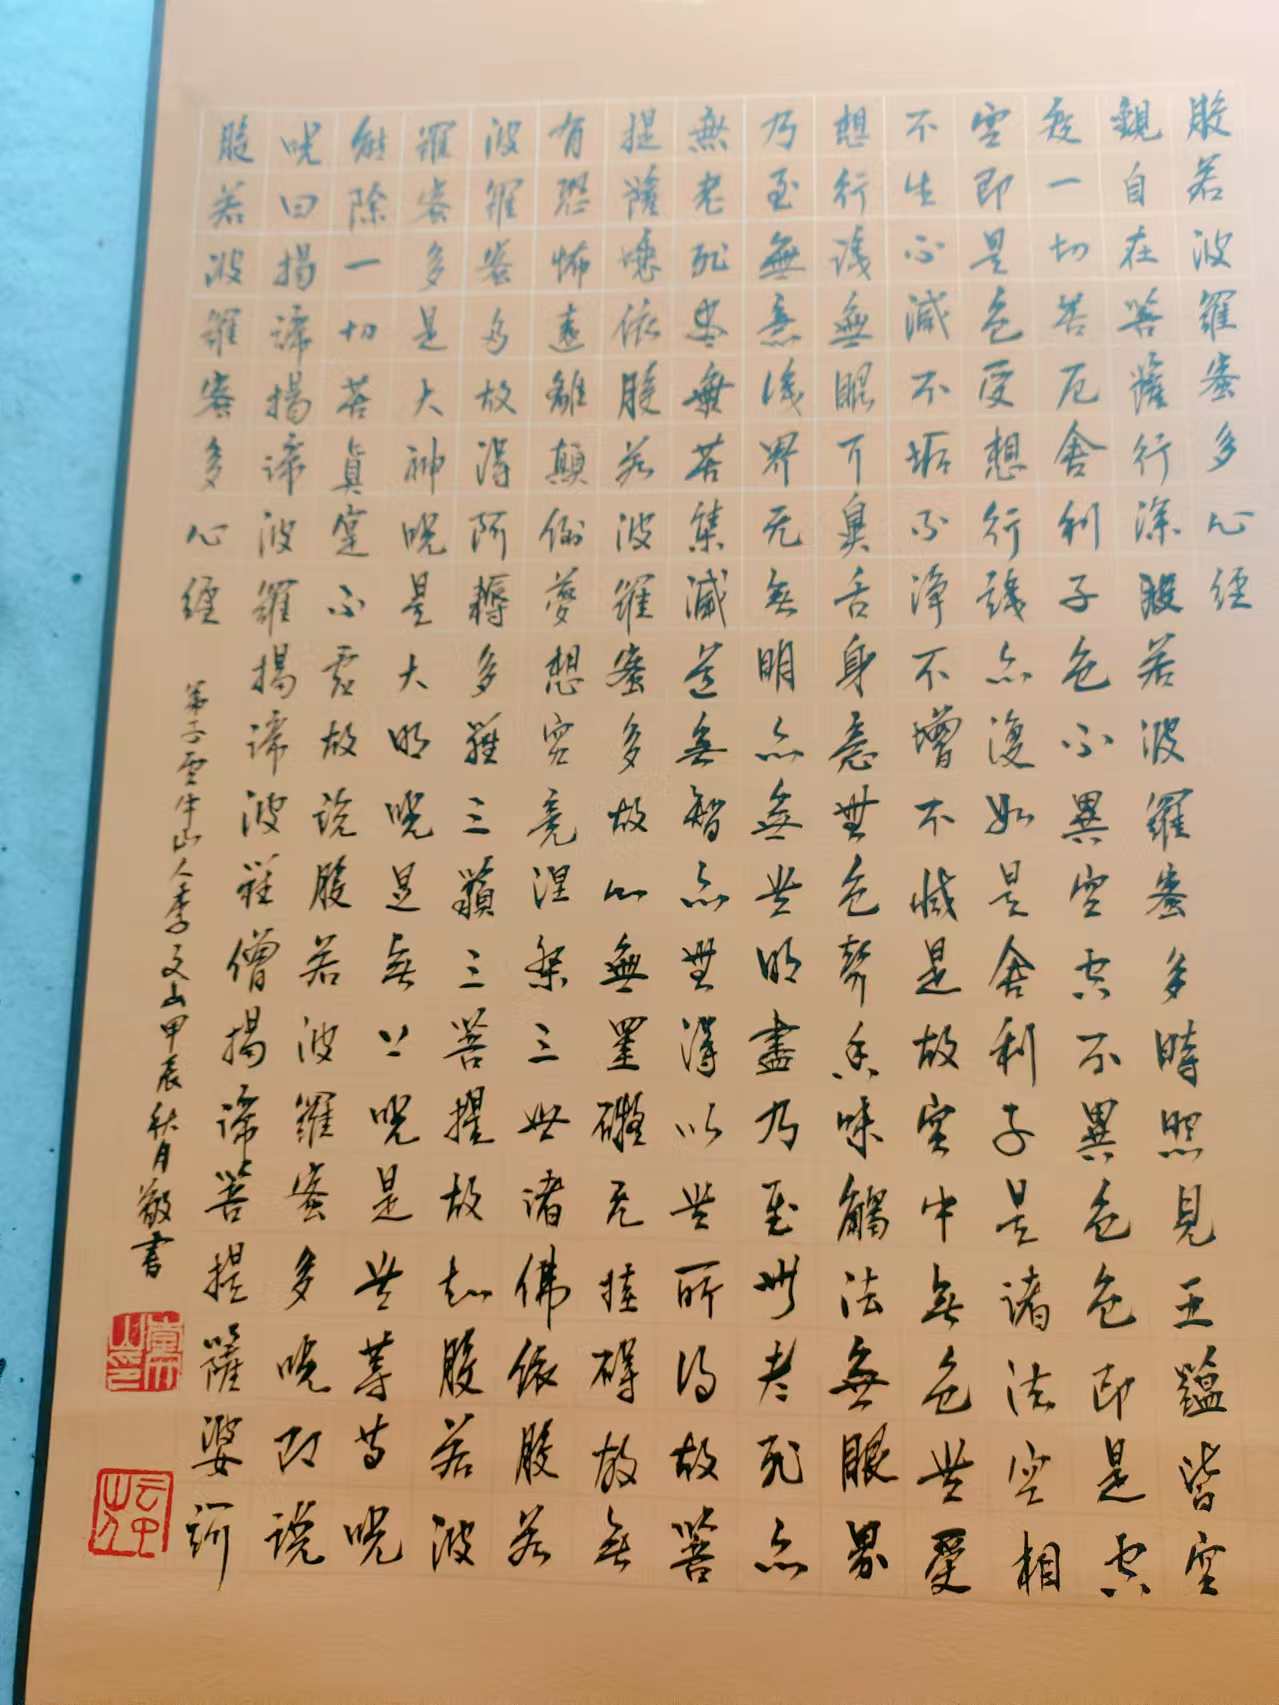 般若波羅蜜多心經
觀自在菩薩行深般若波羅蜜多時照見五蘊皆空
度一切苦厄舍利子色不異空空不異色色即是空
空即是色受想行識亦復如是舍利子是諸法空相
不生不滅不垢不淨不增不減是故空中無色無受
想行識無眼耳鼻舌身意無色聲香味觸法無眼界
乃至無意識界无無明亦無無明盡乃至無老死亦
無老死盡無苦集滅道無智亦無得以無所得故菩
提薩埵依般若波羅蜜多故心無罣礙无挂碍故無
有恐怖遠離顛倒夢想究竟涅槃三世諸佛依般若
波羅蜜多故得阿耨多羅三藐三菩提故知般若波
羅蜜多是大神咒是大明咒是無上咒是無等等咒
能除一切苦真實不虛故說般若波羅蜜多咒即說
咒曰揭諦揭諦波羅揭諦波羅僧揭諦菩提薩婆訶
般若波羅蜜多心經
弟子雲牛山人李文山甲辰秋月敬書